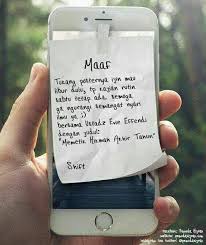 Maaf
Tukang posternya izin mau
libur dulu, tp kajian rutin
sabtu tetap ada, semoga
ga ngurangi semangat nyari
ilmu ya :)
bersama Ustadz Evie Effendi
dengan judul:
"Memetik Hikmah Akhir Tahun"
Shift